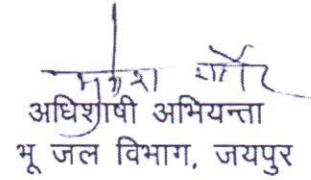 अधिशाषी अभियन्ता
भू जल विभाग, जयपुर